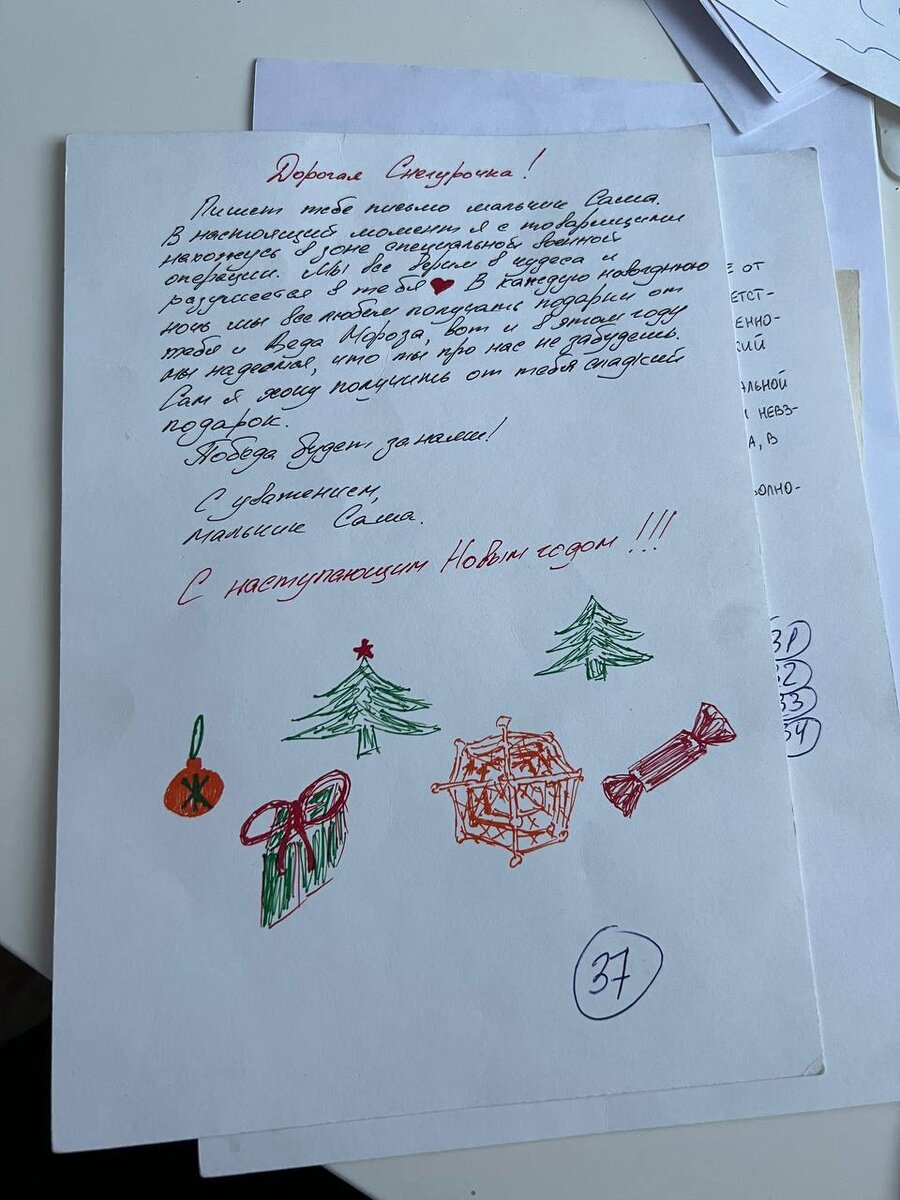 Дорогая Снегурочка!
Пишет тебе письмо мальчик Саша.
В настоящий момент я с товарищами
нахожусь в зоне специальной военной
операции. Мы все верим в чудеса и
разумеется в тебя ❤ В каждую новогоднюю
ночь мы все любим получать подарки от
тебя и Деда Мороза, вот и в этом году
мы надеемся, что ты про нас не забудешь.
Сам я хочу получить от тебя сладкий
подарок.
Победа будет за нами!
С уважением,
мальчик Саша.
С наступающим Новым годом!!!
Ж
37
Е ОТ
ЕТСТ-
ЕННО-
КИЙ
АЛЬНОЙ
НЕВЗ-
А, В
ОЛНО-
32
33
34